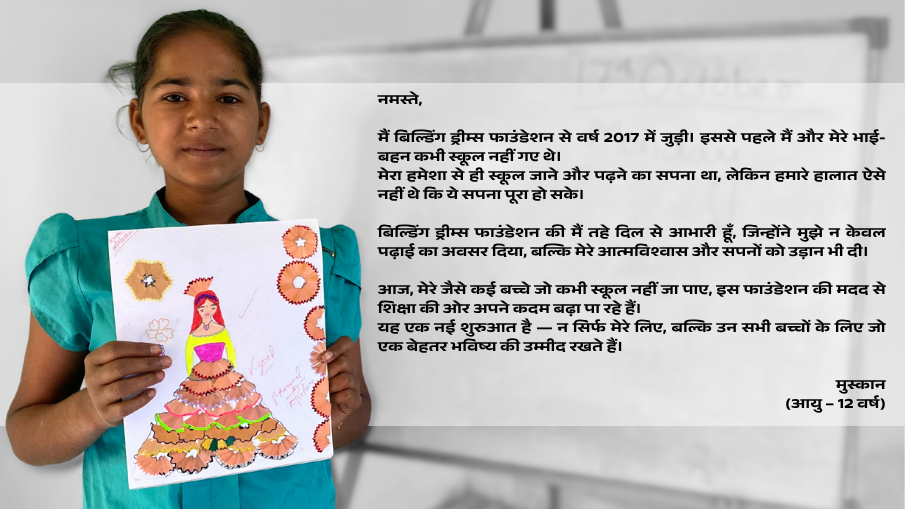 नमस्ते,
मैं बिल्डिंग ड्रीम्स फाउंडेशन से वर्ष 2017 में जुड़ी। इससे पहले मैं और मेरे भाई-
बहन कभी स्कूल नहीं गए थे।
मेरा हमेशा से ही स्कूल जाने और पढ़ने का सपना था, लेकिन हमारे हालात ऐसे
नहीं थे कि ये सपना पूरा हो सके।
बिल्डिंग ड्रीम्स फाउंडेशन की मैं तहे दिल से आभारी हूँ, जिन्होंने मुझे न केवल
पढ़ाई का अवसर दिया, बल्कि मेरे आत्मविश्वास और सपनों को उड़ान भी दी।
आज, मेरे जैसे कई बच्चे जो कभी स्कूल नहीं जा पाए, इस फाउंडेशन की मदद से
शिक्षा की ओर अपने कदम बढ़ा पा रहे हैं।
यह एक नई शुरुआत है — न सिर्फ मेरे लिए, बल्कि उन सभी बच्चों के लिए जो
एक बेहतर भविष्य की उम्मीद रखते हैं।
मुस्कान
(आयु – 12 वर्ष)
17th October